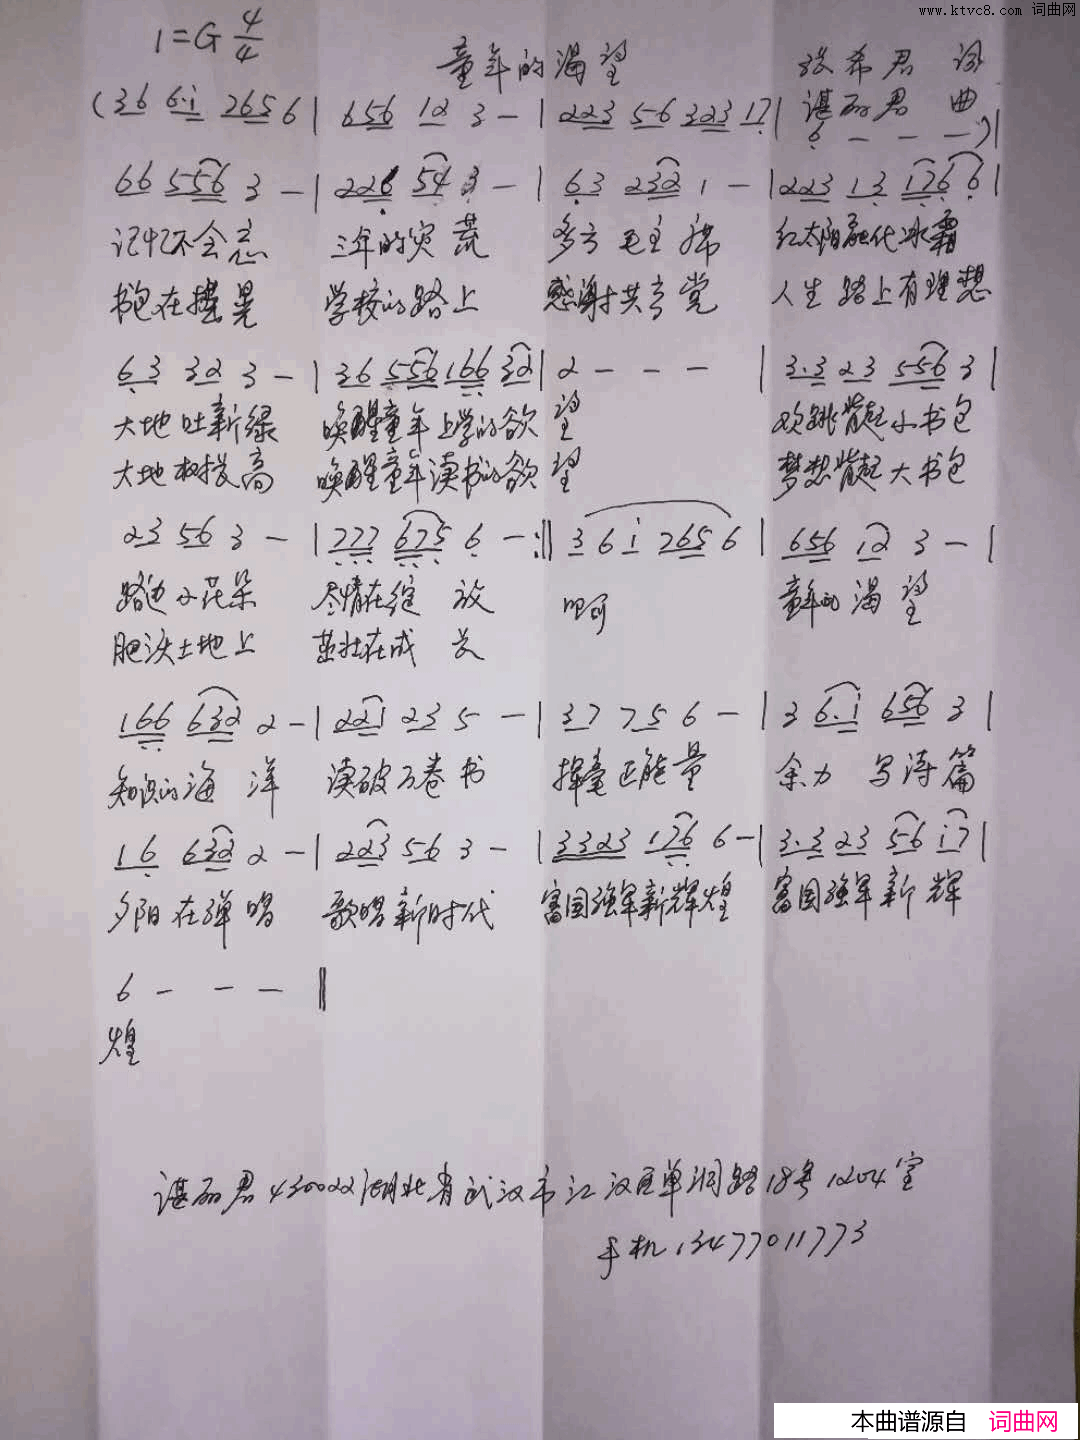 www.ktvc8.com 词曲网
1=G 4/4
童年的渴望 张希君 词
谌丽君 曲
(36 6·i 2656 | 656 12 3 - | 223 56 323 17 | 6 - - -) |
66 556 3 - | 226 54 3 - | 63 232 1 - | 223 13 176 6 |
记忆不会忘 三年的灾荒 多亏毛主席 红太阳融化冰霜
书包在摇晃 学校的路上 感谢共产党 人生路上有理想
63 32 3 - | 36 556 166 32 | 2 - - - | 3·3 23 556 3 |
大地吐新绿 唤醒童年上学的欲望 欢跳背起小书包
大地树拔高 唤醒童年读书的欲望 梦想背起大书包
23 56 3 - | 777 675 6 - :‖ 3 6 i 2656 | 656 12 3 - |
路边小花朵 尽情在绽放 啊 童年的渴望
肥沃土地上 茁壮在成长
166 632 2 - | 221 23 5 - | 37 75 6 - | 3 6·i 656 3 |
知识的海洋 读破万卷书 挥毫正能量 余力写诗篇
16 632 2 - | 223 56 3 - | 3323 176 6 - | 3·3 23 56 i7 |
夕阳在弹唱 歌唱新时代 富国强军新辉煌 富国强军新辉
6 - - - ‖
煌
谌丽君 430022 湖北省武汉市江汉区单洞路18号1204室
手机13477011773
本曲谱源自 词曲网